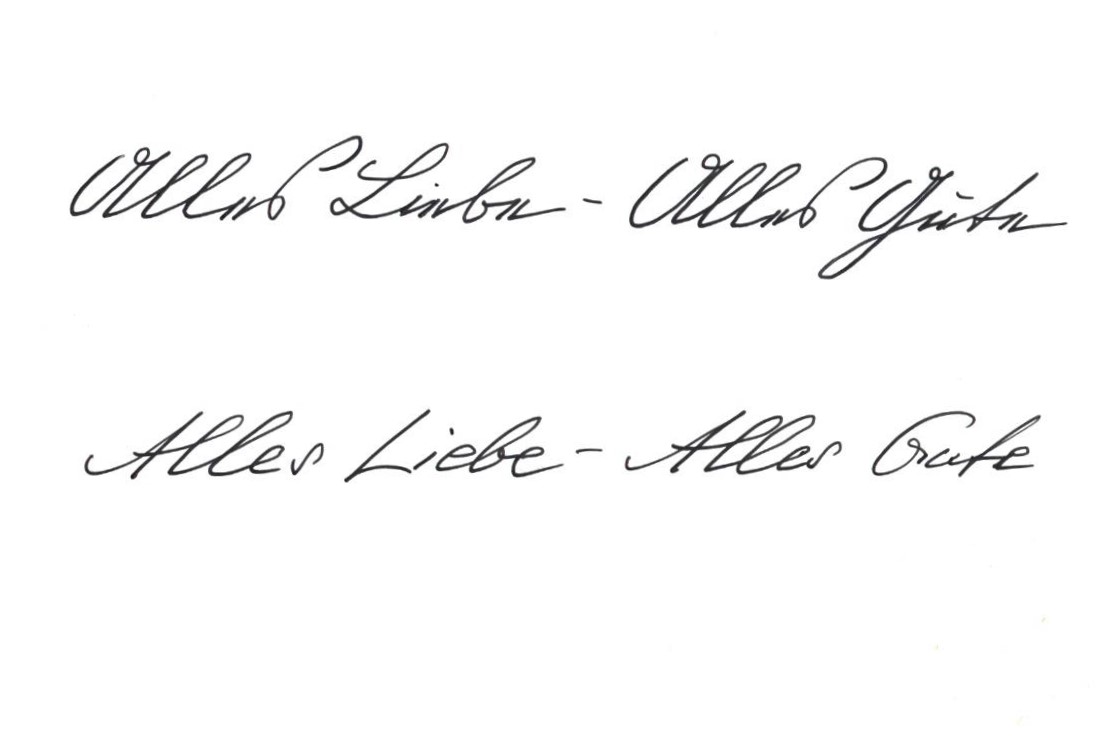 Alles Liebe - Alles Gute
Alles Liebe - Alles Gute